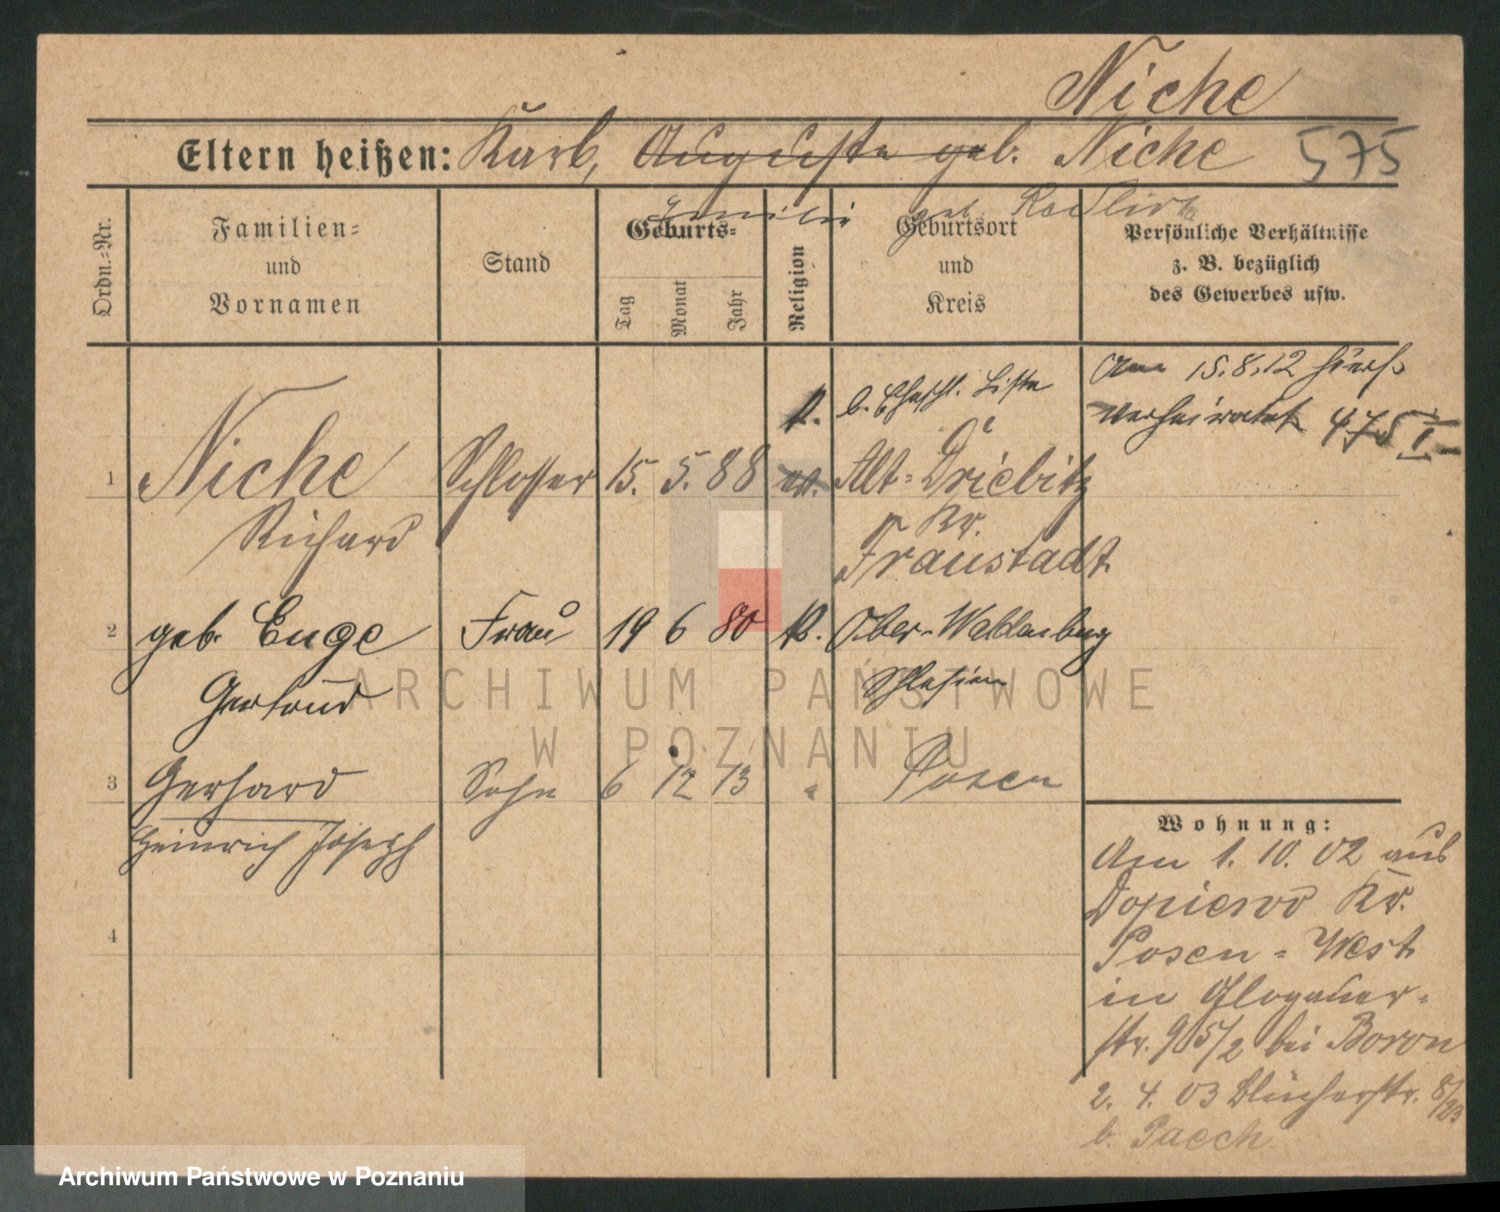 Niche
Eltern heißen: Karl, Auguste geb. Niche 575
geb.
Ordn.-Nr.
Familien-
und
Vornamen
Stand
Geburts-
Tag
Monat
Jahr
Religion
Geburtsort
und
Kreis
Persönliche Verhältnisse
z. B. bezüglich
des Gewerbes usw.
Am 15.8.12 hiers.
verheiratet 475 I
k. b. Eheschl. Liste
1 Niche Schlosser 15. 5. 88 ev. Alt-Driebitz
Richard Kr.
Fraustadt
2 geb. Enge Frau 19 6 80 k. Ober-Waldenburg
Gertrud Schlesien
3 Gerhard Sohn 6 12 13 " Posen
Heinrich Joseph
4
Wohnung:
Am 1. 10. 02 aus
Dopiewo Kr.
Posen-West
in Glogauer-
str. 95/2 bei Boron
2. 4. 03 Blücherstr. 8/
b. Paech
ARCHIWUM PAŃSTWOWE
W POZNANIU
Archiwum Państwowe w Poznaniu